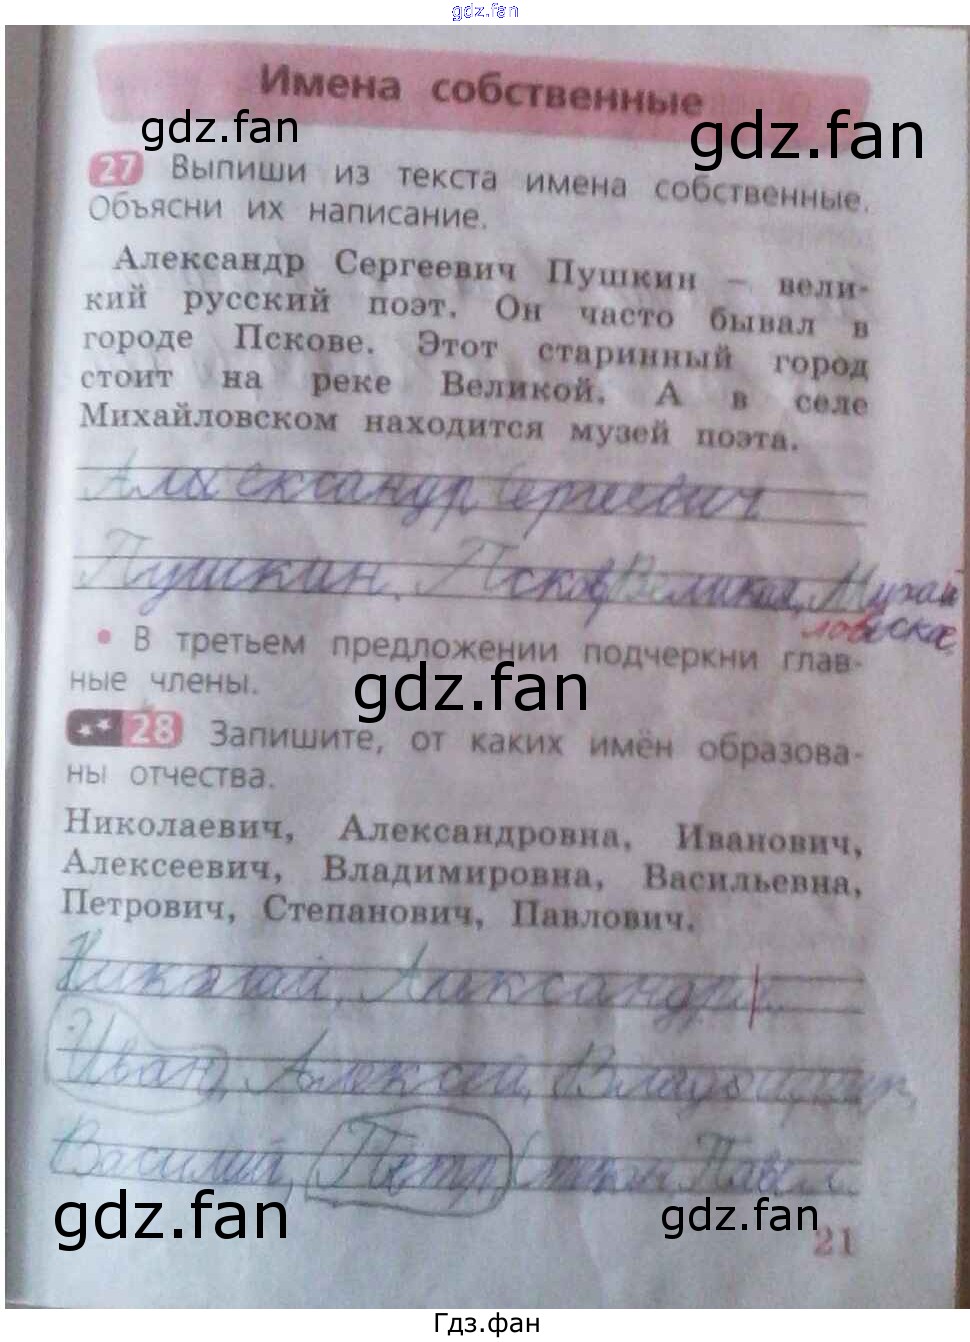 gdz.fan
Имена собственные
gdz.fan gdz.fan
27 Выпиши из текста имена собственные.
Объясни их написание.
Александр Сергеевич Пушкин – вели-
кий русский поэт. Он часто бывал в
городе Пскове. Этот старинный город
стоит на реке Великой. А в селе
Михайловском находится музей поэта.
Александр Сергеевич
Пушкин, Псков, Великая, Михай
ловское,
• В третьем предложении подчеркни глав-
ные члены.
gdz.fan
28 Запишите, от каких имён образова-
ны отчества.
Николаевич, Александровна, Иванович,
Алексеевич, Владимировна, Васильевна,
Петрович, Степанович, Павлович.
Николай, Александр
Иван, Алексей, Владимир,
Василий, Петр, Степан, Павел.
gdz.fan gdz.fan
21
Гдз.фан